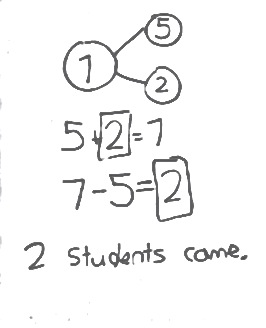 5
7
2
5 + 2 = 7
7 - 5 = 2
2 students came.